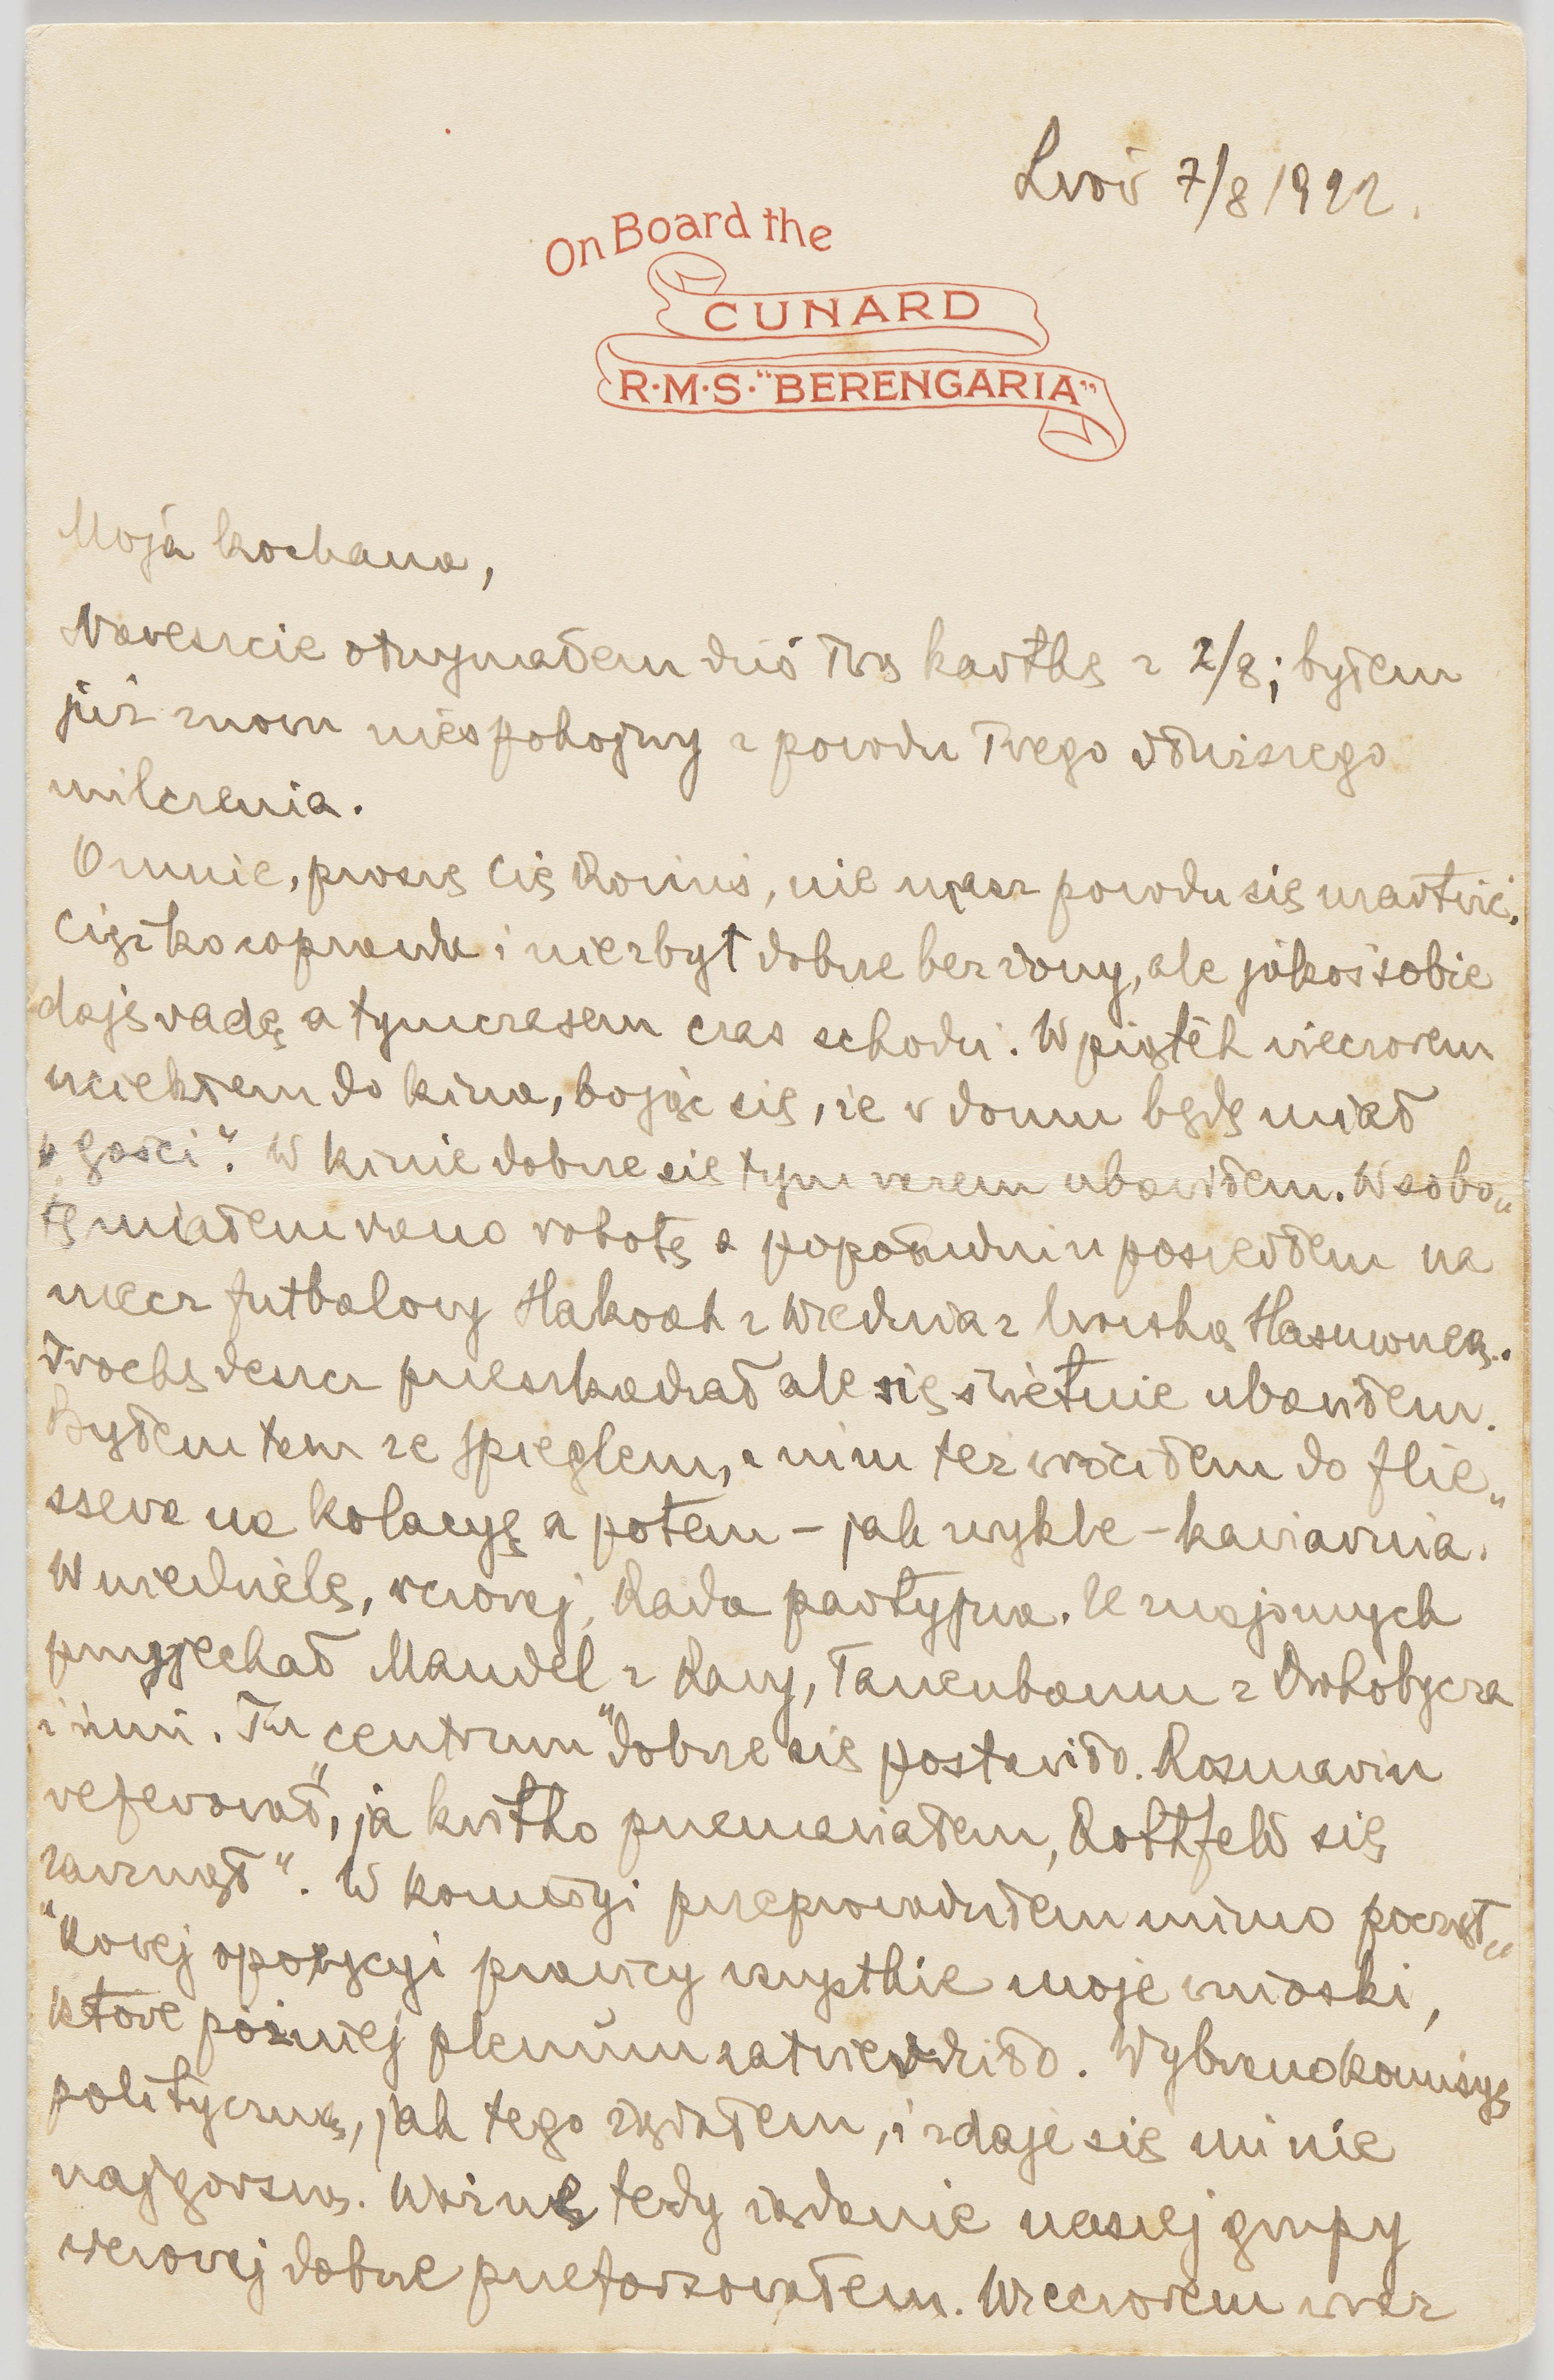 Lwów 7/8 1922.
On Board the
CUNARD
R·M·S·"BERENGARIA"
Moja kochana,
Nareszcie otrzymałem dziś Twą kartkę z 2/8; byłem
już znowu niespokojny z powodu Twego dłuższego
milczenia.
O mnie, proszę Cię Romuś, nie masz powodu się martwić.
Ciężko wprawdzie i niezbyt dobrze bez żony, ale jakoś sobie
daję radę a tymczasem czas schodzi. W piątek wieczorem
uciekłem do kina, bojąc się, że w domu będę miał
„gości". W kinie dobrze się tym razem ubawiłem. W sobo„
tę miałem rano robotę a popołudniu poszedłem na
mecz futbalowy Hakoah z Wiednia z lwowską Hasmoneą.
Trochę deszcz przeszkadzał ale się świetnie ubawiłem.
Byłem tam ze Spieglem, z nim też wróciłem do Flie„
ssera na kolacyę a potem – jak zwykle – kawiarnia.
W niedzielę, wczoraj, Rada partyjna. Ze znajomych
przyjechał Mandel z Rawy, Tanenbaum z Drohobycza
i inni. Tu „centrum" dobrze się postawiło. Rosmarin
referował, ja krótko przemawiałem, Rothfeld się
„zarznął". W komisyi przeprowadziłem mimo począt„
„kowej opozycyi prawicy wszystkie moje wnioski,
które później plenum zatwierdziło. Wybrano komisyę
polityczną, jak tego żądałem, i zdaje się mi nie
najgorszą. Ważne tedy zadanie naszej grupy
wczoraj dobrze przeforsowałem. Wieczorem wraz